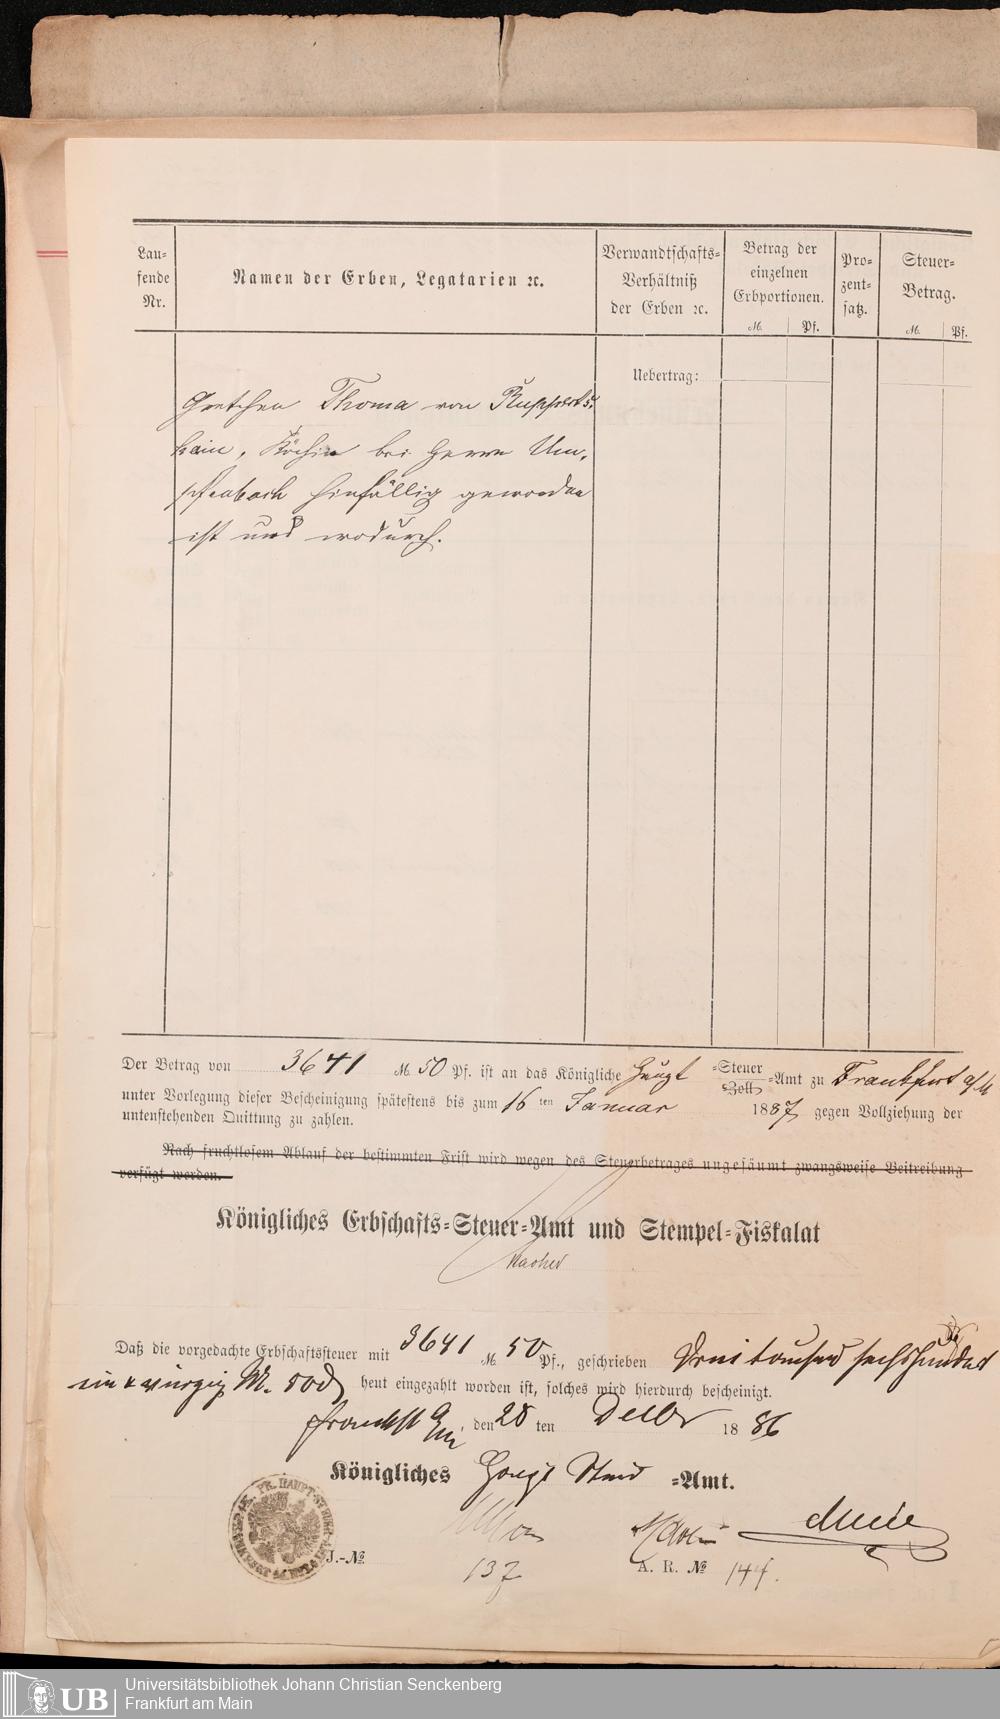 Lau-
fende
Nr.
Namen der Erben, Legatarien ꝛc.
Verwandtschafts-
Verhältniß
der Erben ꝛc.
Betrag der
einzelnen
Erbportionen.
M. Pf.
Pro-
zent-
satz.
Steuer-
Betrag.
M. Pf.
Uebertrag:
Gretchen Thoma von Rupperts-
hain, Köchin bei Herrn Um-
pfenbach hinfällig geworden
ist und wodurch.
Der Betrag von 3641 M. 50 Pf. ist an das Königliche Haupt -Steuer Zoll -Amt zu Frankfurt a/M
unter Vorlegung dieser Bescheinigung spätestens bis zum 16 ten Januar 1887 gegen Vollziehung der
untenstehenden Quittung zu zahlen.
Nach fruchtlosem Ablauf der bestimmten Frist wird wegen des Steuerbetrages ungesäumt zwangsweise Beitreibung
verfügt werden.
Königliches Erbschafts-Steuer-Amt und Stempel-Fiskalat
Daß die vorgedachte Erbschaftssteuer mit 3641 M. 50 Pf., geschrieben Dreitausend sechshundert
ein & vierzig M. 50 heut eingezahlt worden ist, solches wird hierdurch bescheinigt.
den 28 ten Decbr 1886
Königliches Haupt Steuer -Amt.
J.-№ 137 A. R. № 144.
UB
Universitätsbibliothek Johann Christian Senckenberg
Frankfurt am Main